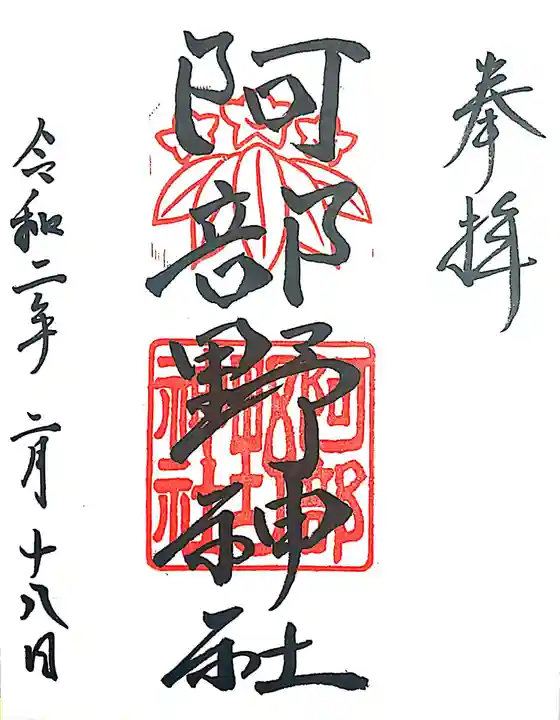 奉拝
阿部野神社
阿部
野
神社
令和二年 二月十八日